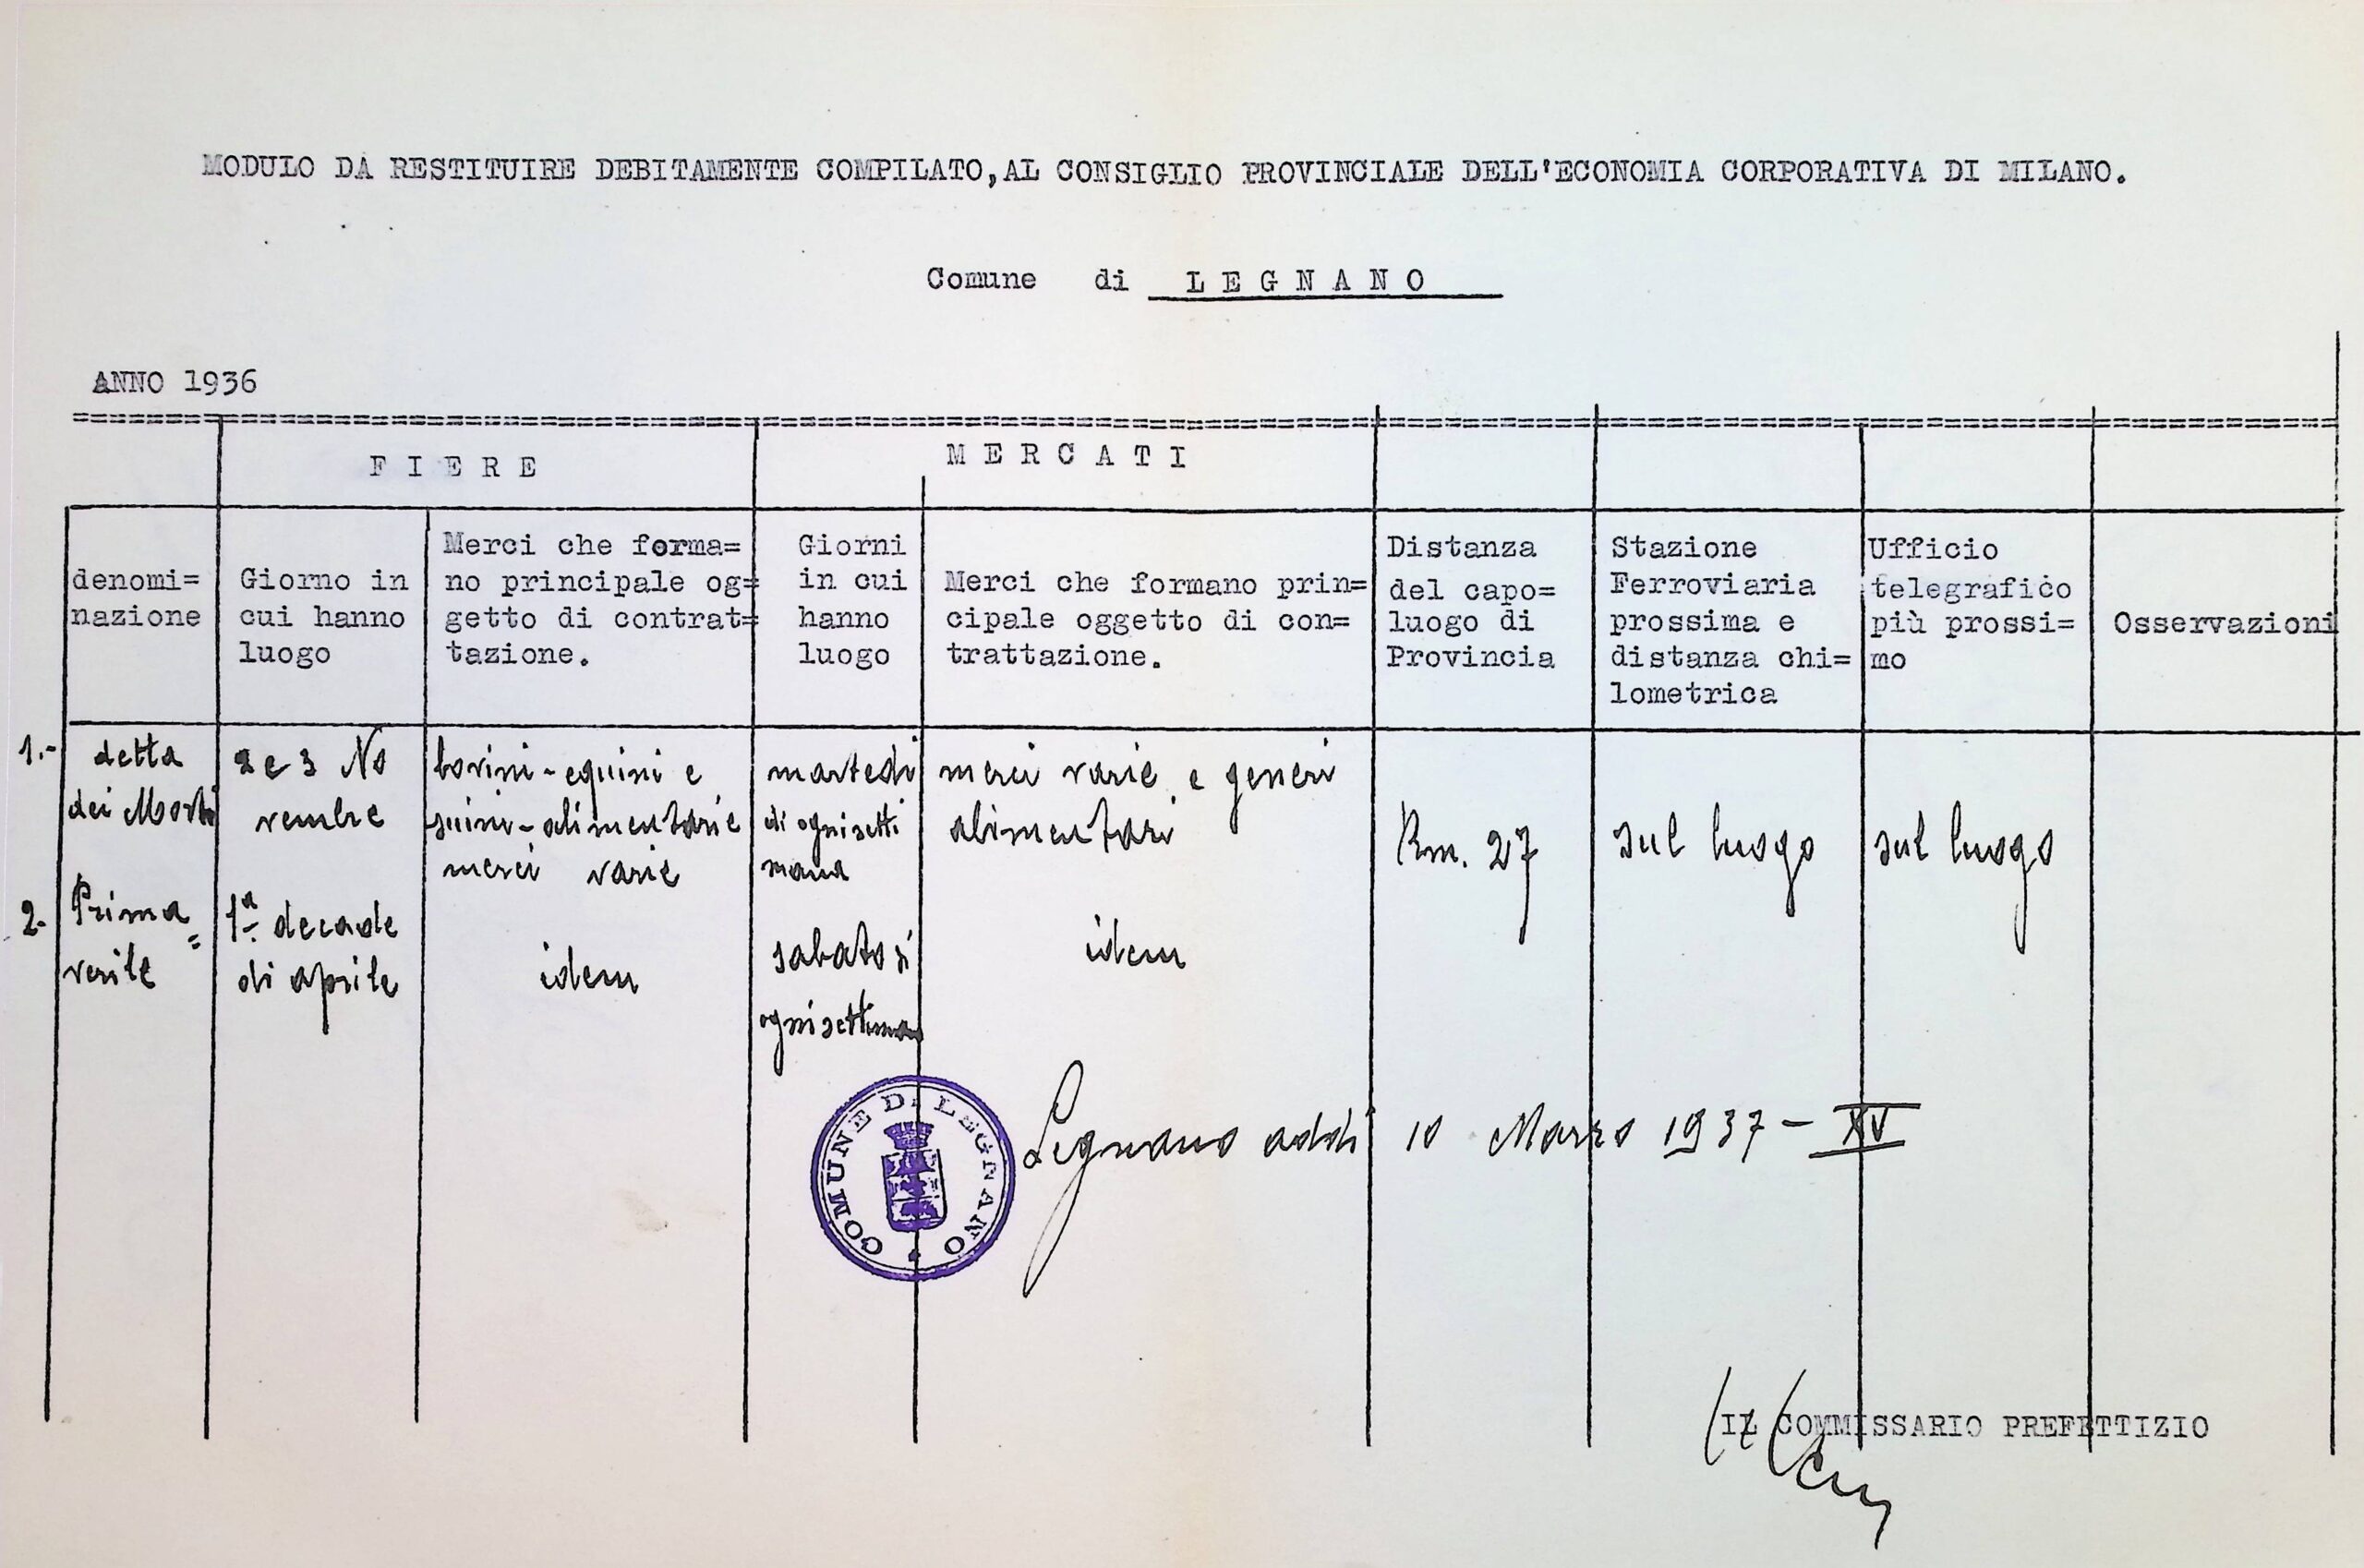 MODULO DA RESTITUIRE DEBITAMENTE COMPILATO, AL CONSIGLIO PROVINCIALE DELL'ECONOMIA CORPORATIVA DI MILANO.
Comune di LEGNANO
ANNO 1936
FIERE
MERCATI
denomi=
nazione
Giorno in
cui hanno
luogo
Merci che forma=
no principale og=
getto di contrat=
tazione.
Giorni
in cui
hanno
luogo
Merci che formano prin=
cipale oggetto di con=
trattazione.
Distanza
del capo=
luogo di
Provincia
Stazione
Ferroviaria
prossima e
distanza chi=
lometrica
Ufficio
telegrafico
più prossi=
mo
Osservazioni
1.-
detta
dei Morti
2 e 3 No
vembre
bovini - equini e
suini - alimentarie
merci varie
martedi
di ogni setti
mana
merci varie e generi
alimentari
Km. 27
sul luogo
sul luogo
2.
Prima=
verile
1ª decade
di aprile
idem
sabato di
ogni settimana
idem
COMUNE DI LEGNANO
Legnano addi 10 Marzo 1937 - XV
IL COMMISSARIO PREFETTIZIO